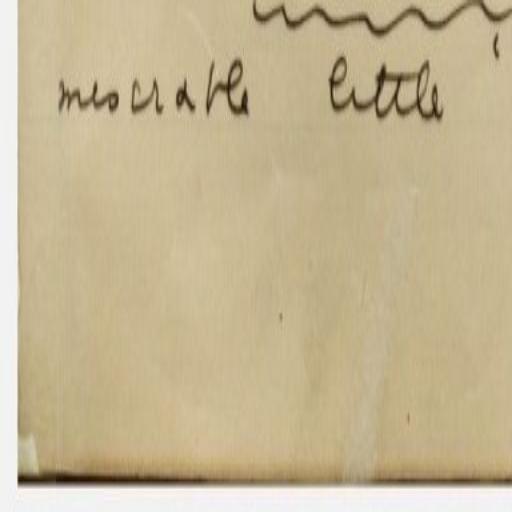 miserable little